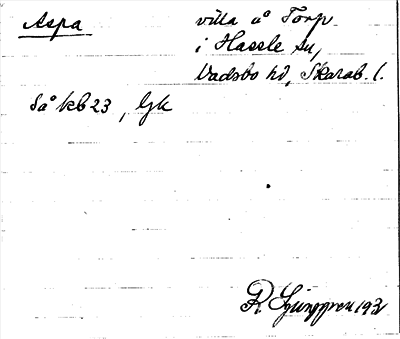 Aspa
villa å Torp
i Hassle sn,
Vadsbo hd, Skarab. l.
Så kb 23, Gk
R. Ljunggren 193